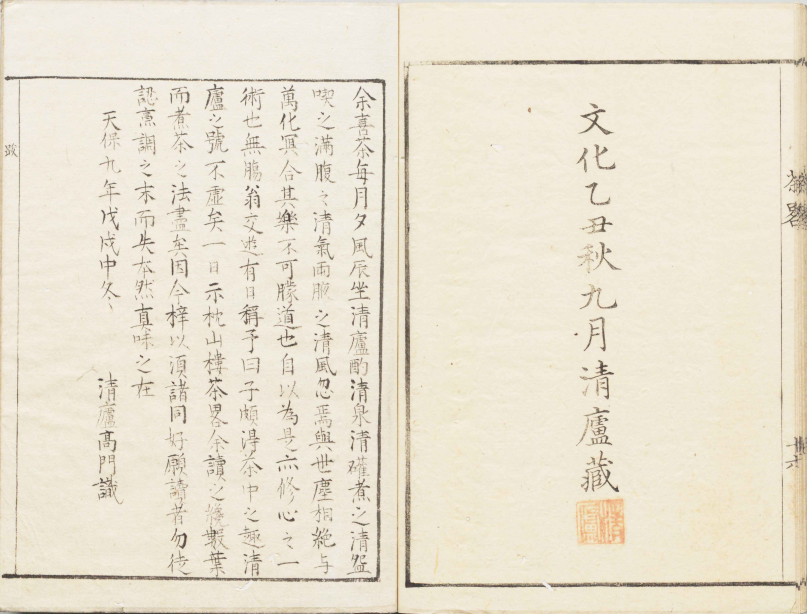 茶畧
廿六
文化乙丑秋九月清廬藏
清廬
余喜茶每月夕風辰坐清廬酌清泉清罐煮之清盌
喫之滿腹之清氣兩腋之清風忽焉與世塵相絶与
萬化冥合其樂不可朦道也自以為是亦修心之一
術也無腸翁交遊有日稱予曰子頗得茶中之趣清
廬之號不虛矣一日示枕山樓茶畧余讀之纔數葉
而煮茶之法盡矣因今梓以須諸同好願讀者勿徒
認烹調之末而失本然真味之在
天保九年戊戌中冬
清廬高門識
跋